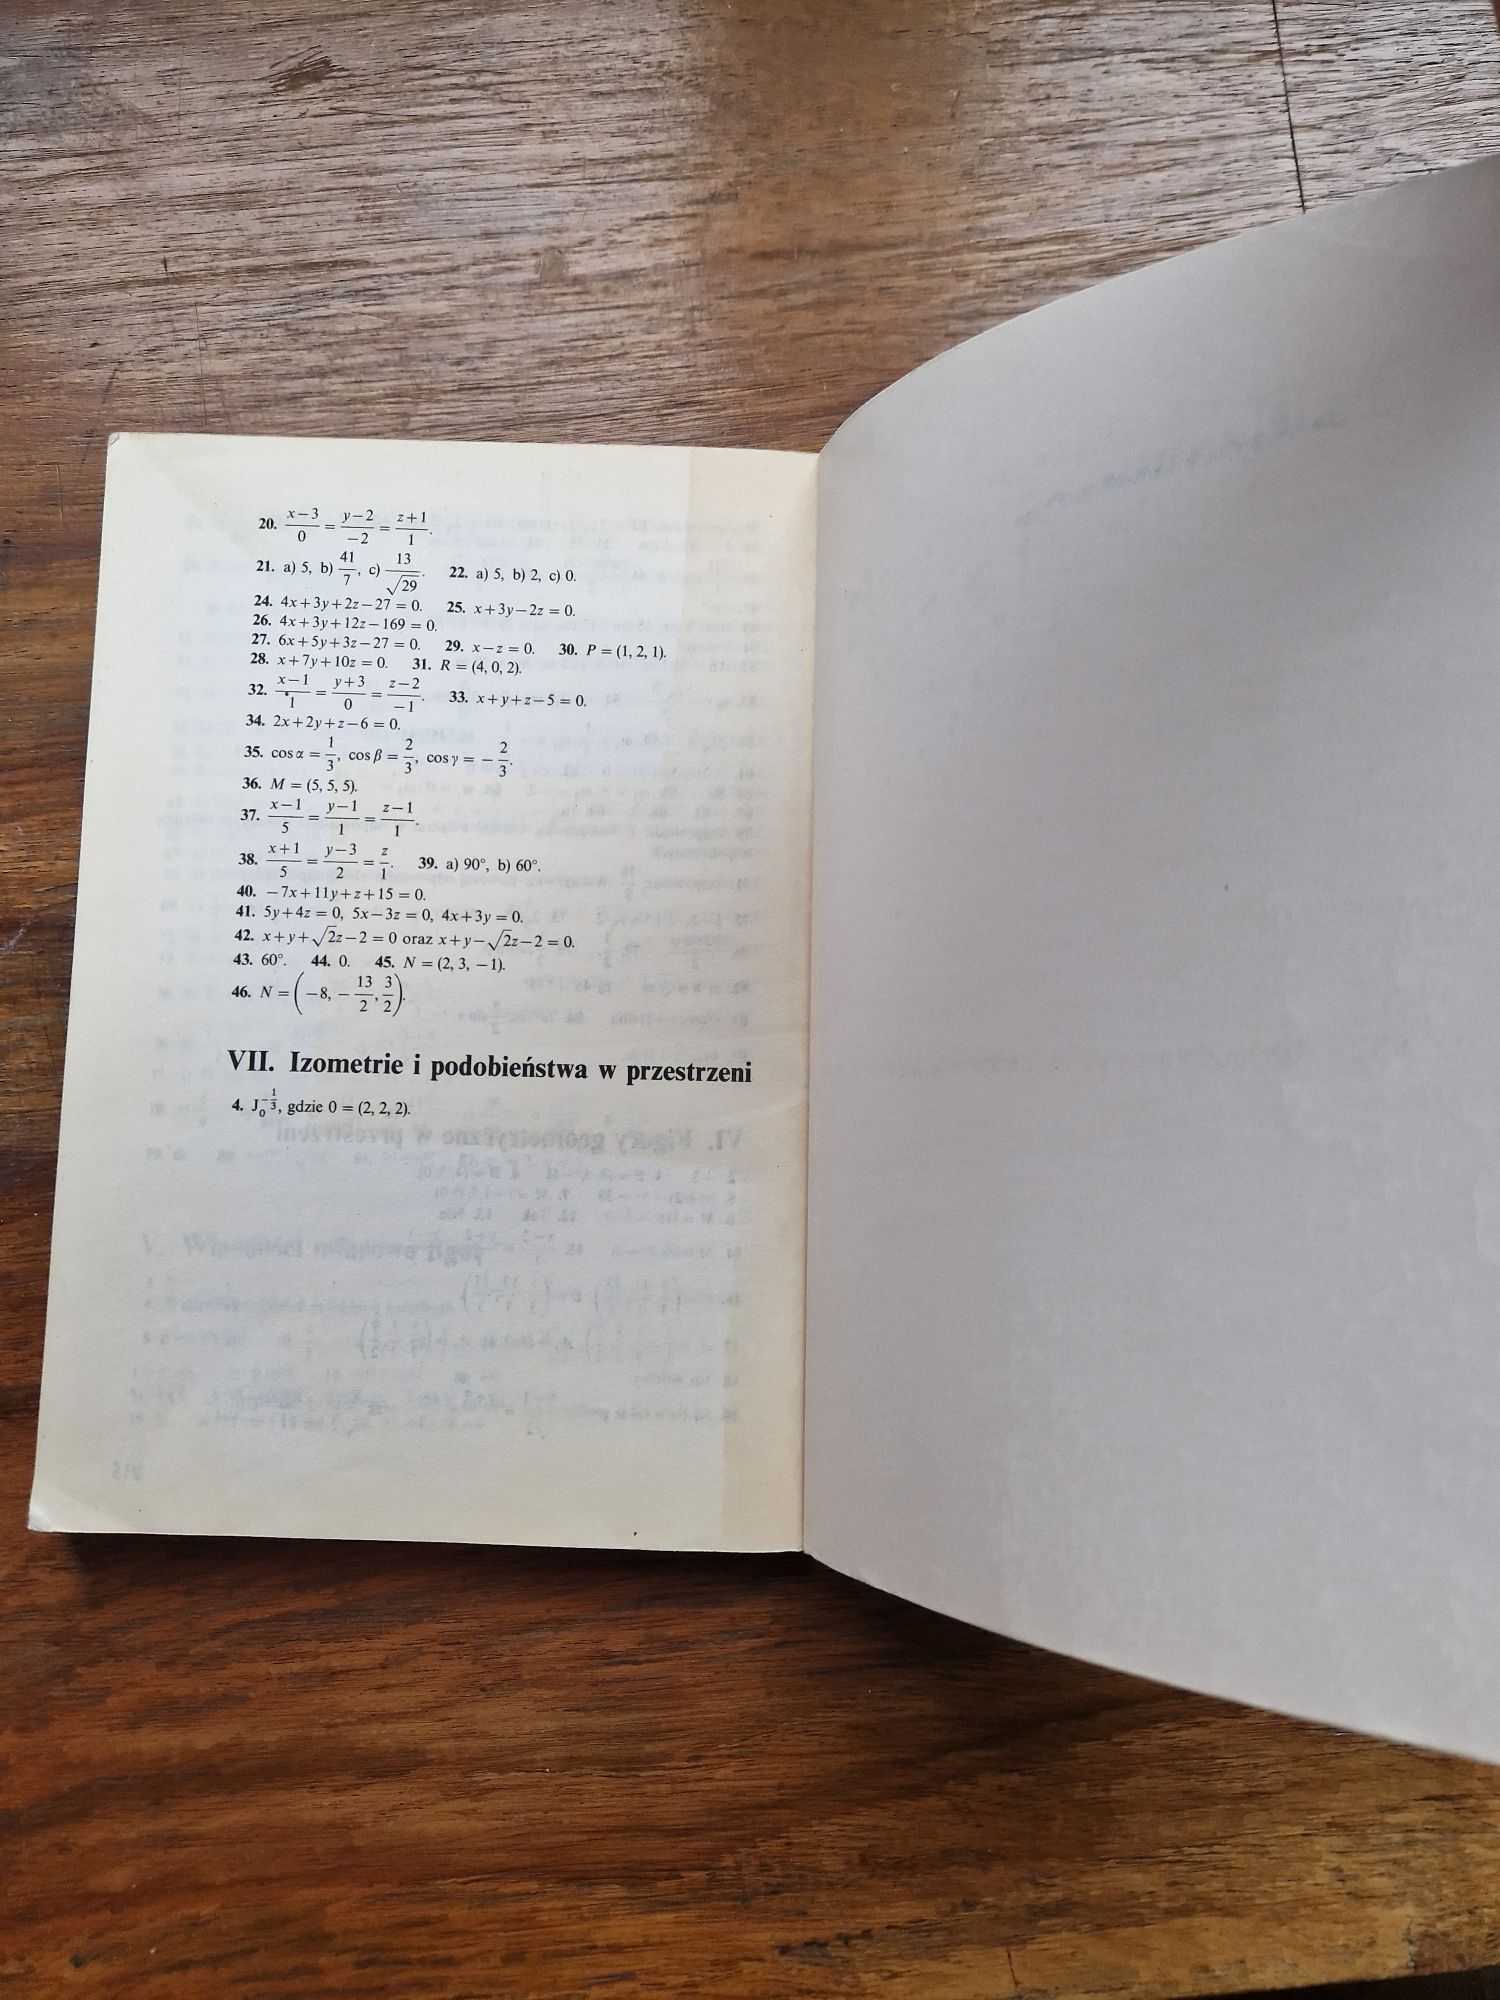 20. (x−3)/0 = (y−2)/−2 = (z+1)/1.
21. a) 5, b) 41/7, c) 13/√29. 22. a) 5, b) 2, c) 0.
24. 4x+3y+2z−27 = 0. 25. x+3y−2z = 0.
26. 4x+3y+12z−169 = 0.
27. 6x+5y+3z−27 = 0. 29. x−z = 0. 30. P = (1, 2, 1).
28. x+7y+10z = 0. 31. R = (4, 0, 2).
32. (x−1)/1 = (y+3)/0 = (z−2)/−1. 33. x+y+z−5 = 0.
34. 2x+2y+z−6 = 0.
35. cos α = 1/3, cos β = 2/3, cos γ = −2/3.
36. M = (5, 5, 5).
37. (x−1)/5 = (y−1)/1 = (z−1)/1.
38. (x+1)/5 = (y−3)/2 = z/1. 39. a) 90°, b) 60°.
40. −7x+11y+z+15 = 0.
41. 5y+4z = 0, 5x−3z = 0, 4x+3y = 0.
42. x+y+√2z−2 = 0 oraz x+y−√2z−2 = 0.
43. 60°. 44. 0. 45. N = (2, 3, −1).
46. N = (−8, −13/2, 3/2).
VII. Izometrie i podobieństwa w przestrzeni
4. J₀^(−1/3), gdzie 0 = (2, 2, 2).